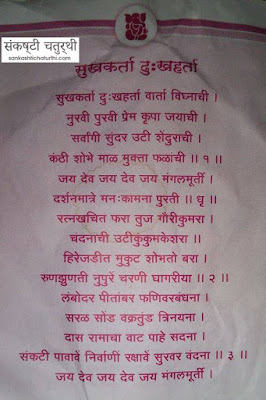 संकष्टी चतुर्थी
sankashtichaturthi.com
सुखकर्ता दुःखहर्ता
सुखकर्ता दुःखहता वार्ता विघ्नाची ।
नुरवी पुरवी प्रेम कृपा जयाची ।
सर्वांगी सुंदर उटी शेंदुराची ।
कंठी शोभे माळ मुक्ता फळांची ।। १ ।।
जय देव जय देव जय मंगलमूर्ती ।
दर्शनमात्रे मनःकामना पुरती ।। धृ ।।
रत्नखचित फरा तुज गौरीकुमरा ।
चंदनाची उटीकुंकुमकेशरा ।।
हिरेजडीत मुकुट शोभतो बरा ।
रुणझुणती नुपुरें चरणी घागरीया ।। २ ।।
लंबोदर पीतांबर फणिवरबंधना ।
सरळ सोंड वक्रतुंड त्रिनयना ।
दास रामाचा वाट पाहे सदना ।
संकटी पावावें निर्वाणीं रक्षावें सुरवर वंदना ।। ३ ।।
जय देव जय देव जय मंगलमूर्ती ।